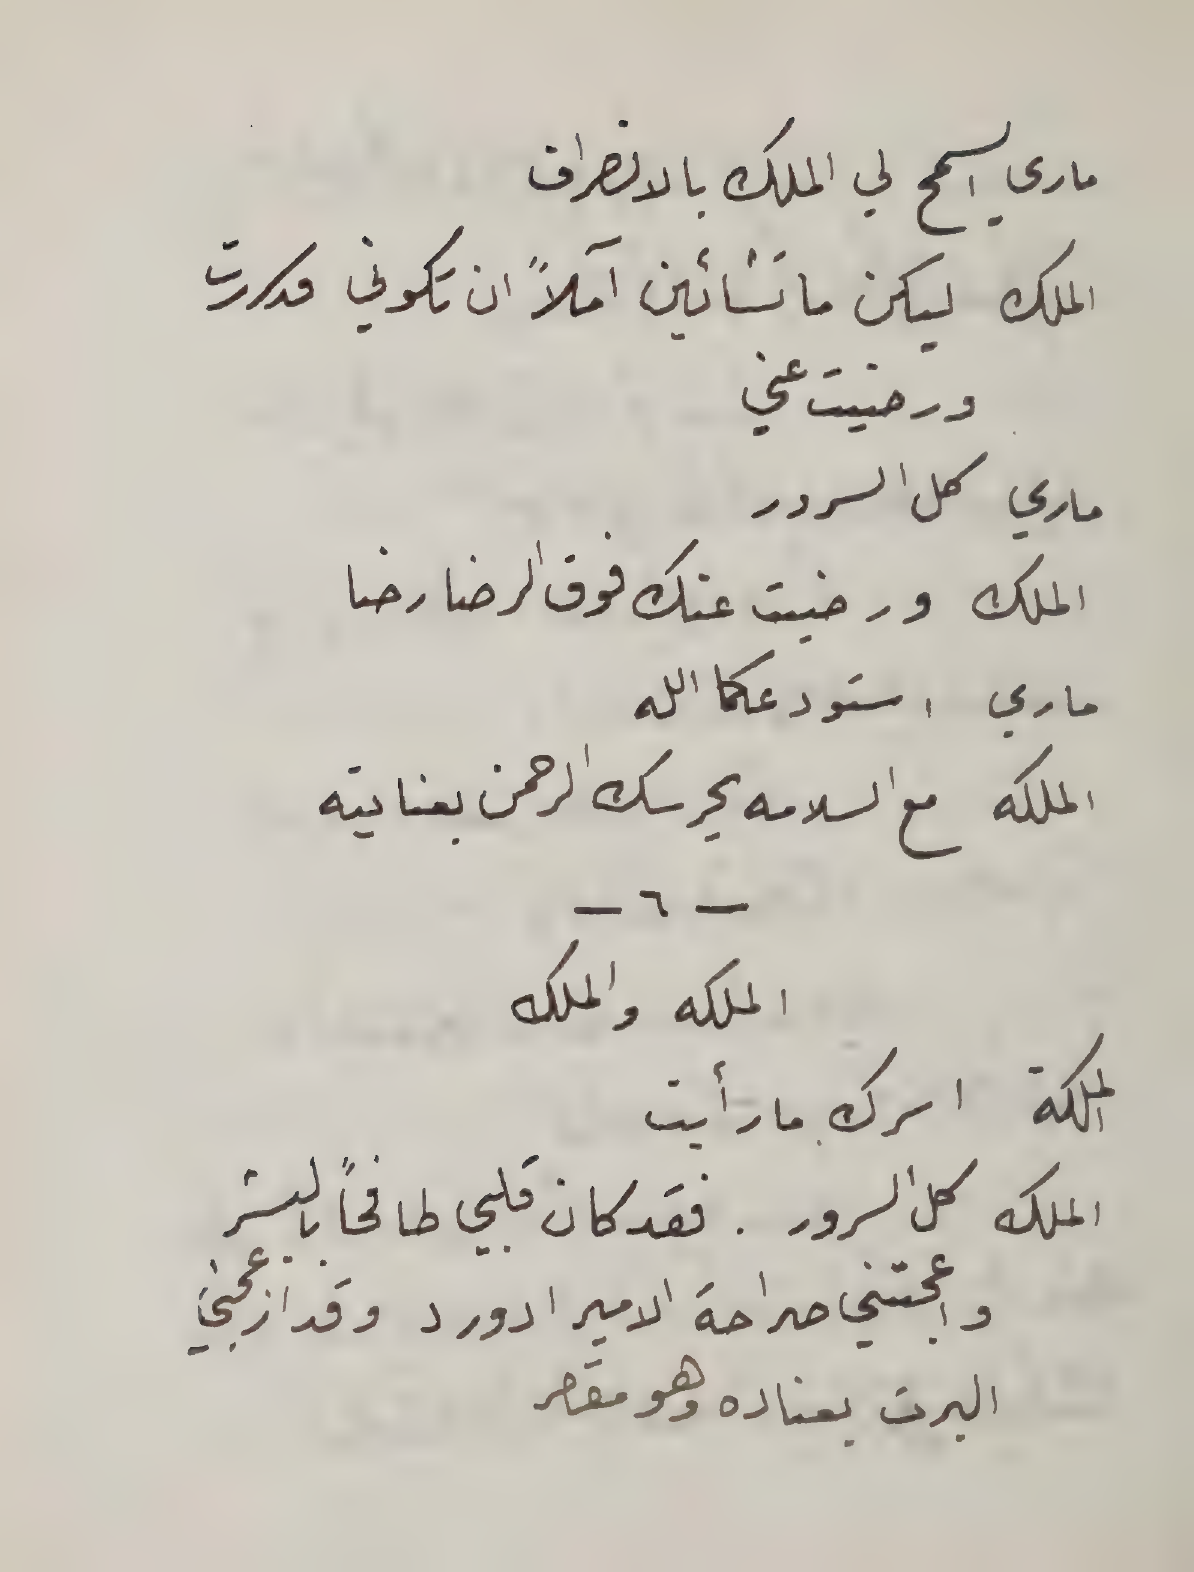 ماري ايسمح لي الملك بالانصراف
الملك ليكن ما تشائين آملاً ان تكوني قد سررت
ورضيت عني
ماري كل السرور
الملك ورضيت عنك فوق الرضا رضا
ماري استودعكما الله
الملكه مع السلامه يحرسك الرحمن بعنايته
— ٦ —
الملكه والملك
الملكة اسرك ما رأيت
الملك كل السرور . فقد كان قلبي طافحاً بالبشر
واعجبتني صراحة الامير ادورد وقد ازعجني
البرت بعناده وهو مقصر